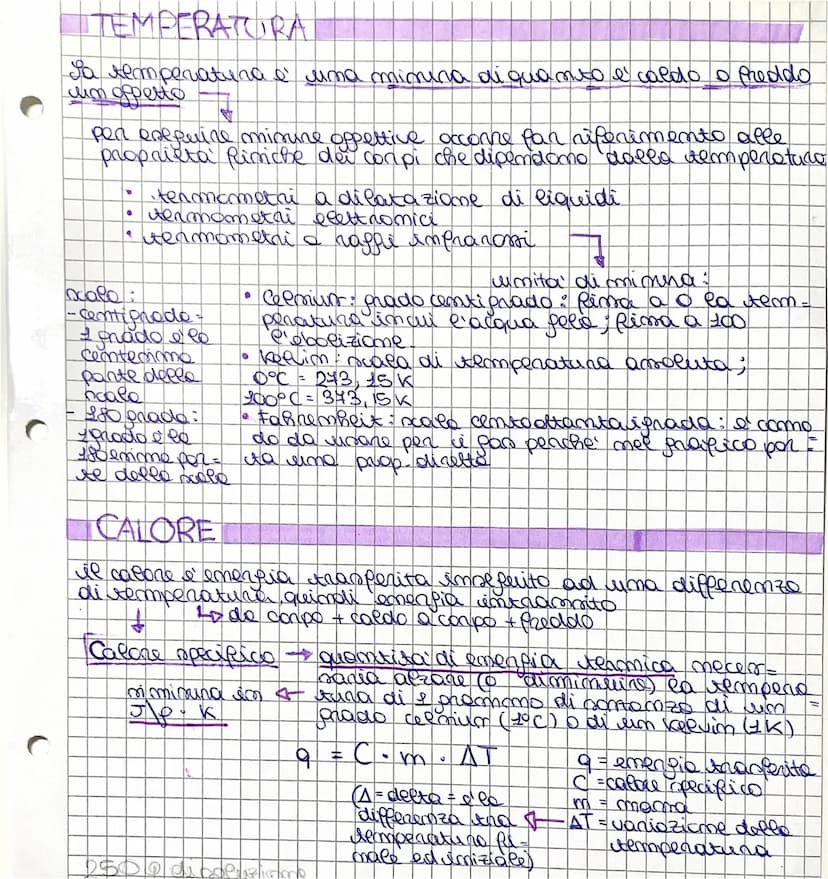 TEMPERATURA
La temperatura è una misura di quanto è caldo o freddo
un oggetto
per eseguire misure oggettive occorre far riferimento alle
proprietà fisiche dei corpi che dipendono dalla temperatura
• termometri a dilatazione di liquidi
• termometri elettronici
• termometri a raggi infrarossi
unità di misura:
scala:
- centigrada =
1 grado è la
centesima
parte della
scala
- 180 grada:
1 grado è la
180esima par=
te della scala
• Celsius: grado centigrado: fissa a 0 la tem=
peratura in cui l'acqua gela; fissa a 100
l'ebollizione
• Kelvin: scala di temperatura assoluta;
0°C = 273,15 K
100°C = 373,15 K
• Fahrenheit: scala centottantaigrada: è como
do da usare per i gas perché nel grafico por=
ta una prop. diretta
CALORE
il calore è energia trasferita in seguito ad una differenza
di temperatura, quindi energia in transito
↳ da corpo + caldo a corpo + freddo
Calore specifico → quantità di energia termica neces=
saria alzare (o diminuire) la tempera=
tura di 1 grammo di sostanza di un
grado celsius (1°C) o di un kelvin (1K)
si misura in
J/g · K
q = C · m · ΔT
q = energia trasferita
C = calore specifico
m = massa
ΔT = variazione della
temperatura
(Δ = delta = è la
differenza tra
temperatura fi=
nale ed iniziale)
250 g di soluzione